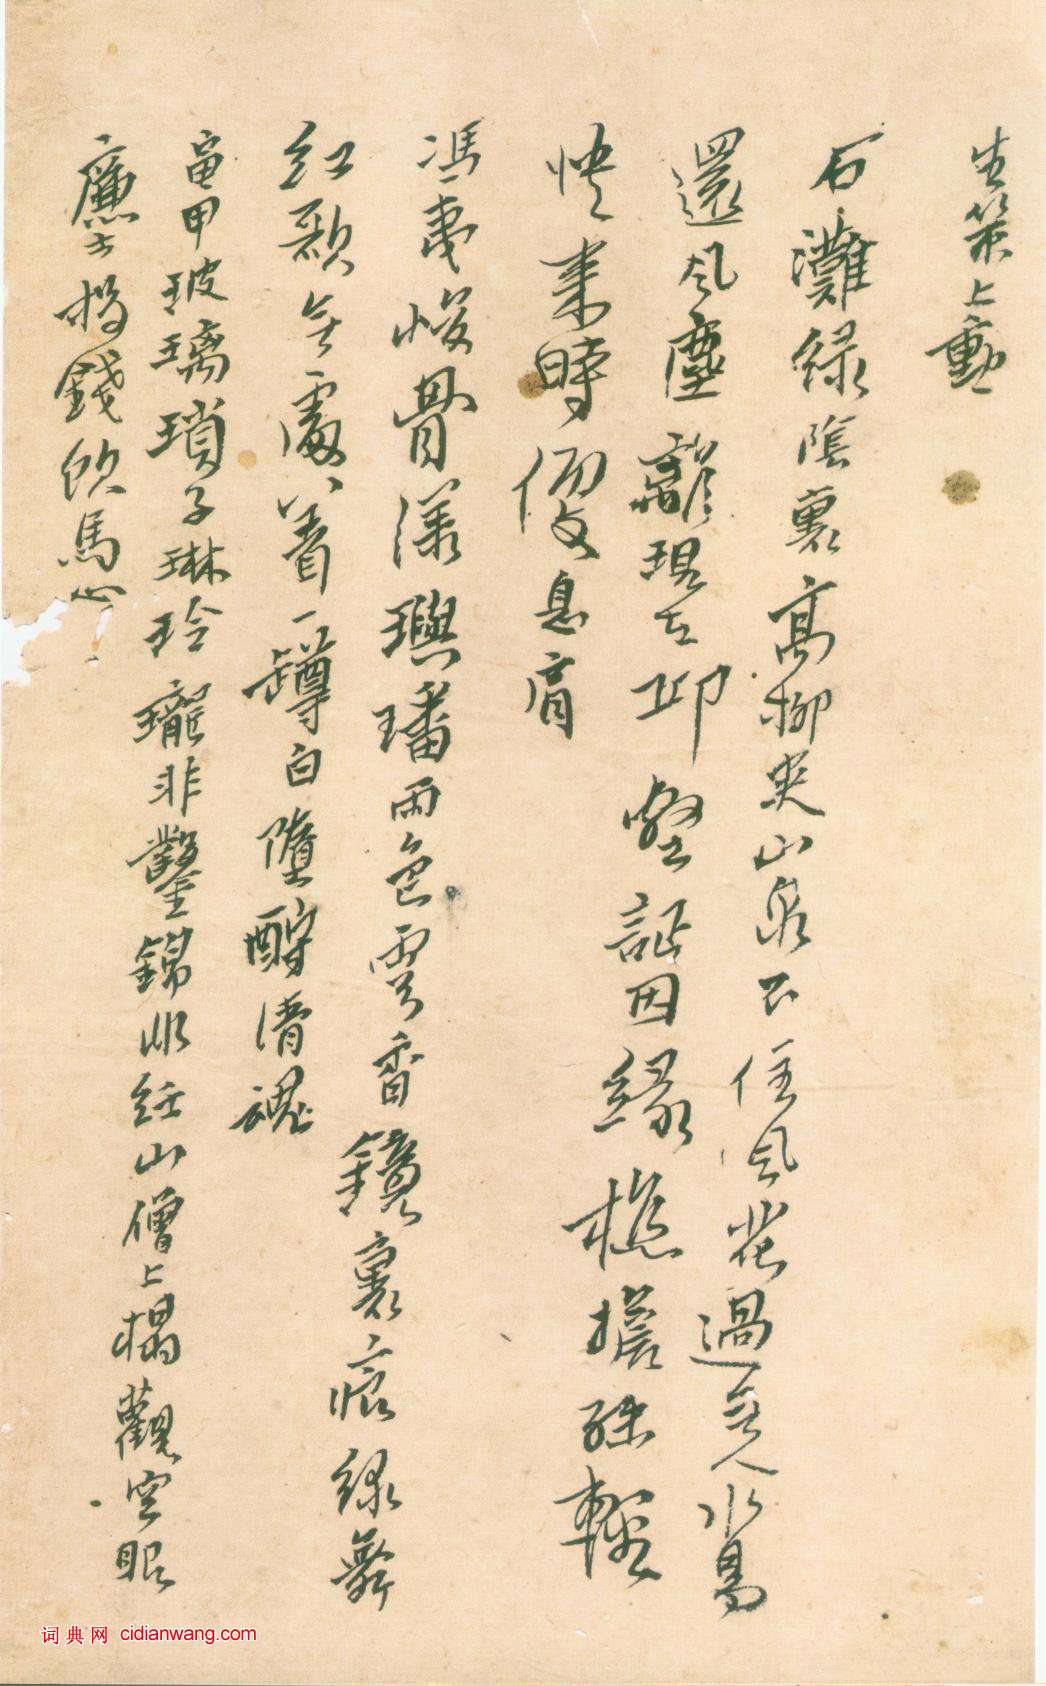 生策上勳
石灘綠陰裏高柳夾山泉不住風花過無人水鳥
還風塵辭現在邱壑証因緣樵擔殊輕
快來時便息肩
馮夷燬骨漾璵璠雨色雲香鏡裏痕綠舞
紅歌無處著一罇白墮酹清魂
黿甲玻璃瑣子琳玲瓏非鑿錦非紝山僧上榻觀空眼
廉士投錢飲馬心
词典网 cidianwang.com